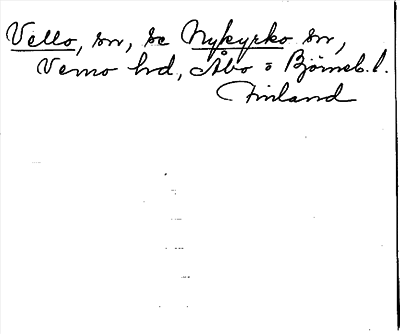 Vello, sn, se Nykyrko sn,
Vemo hd, Åbo o Björneb. l.
Finland